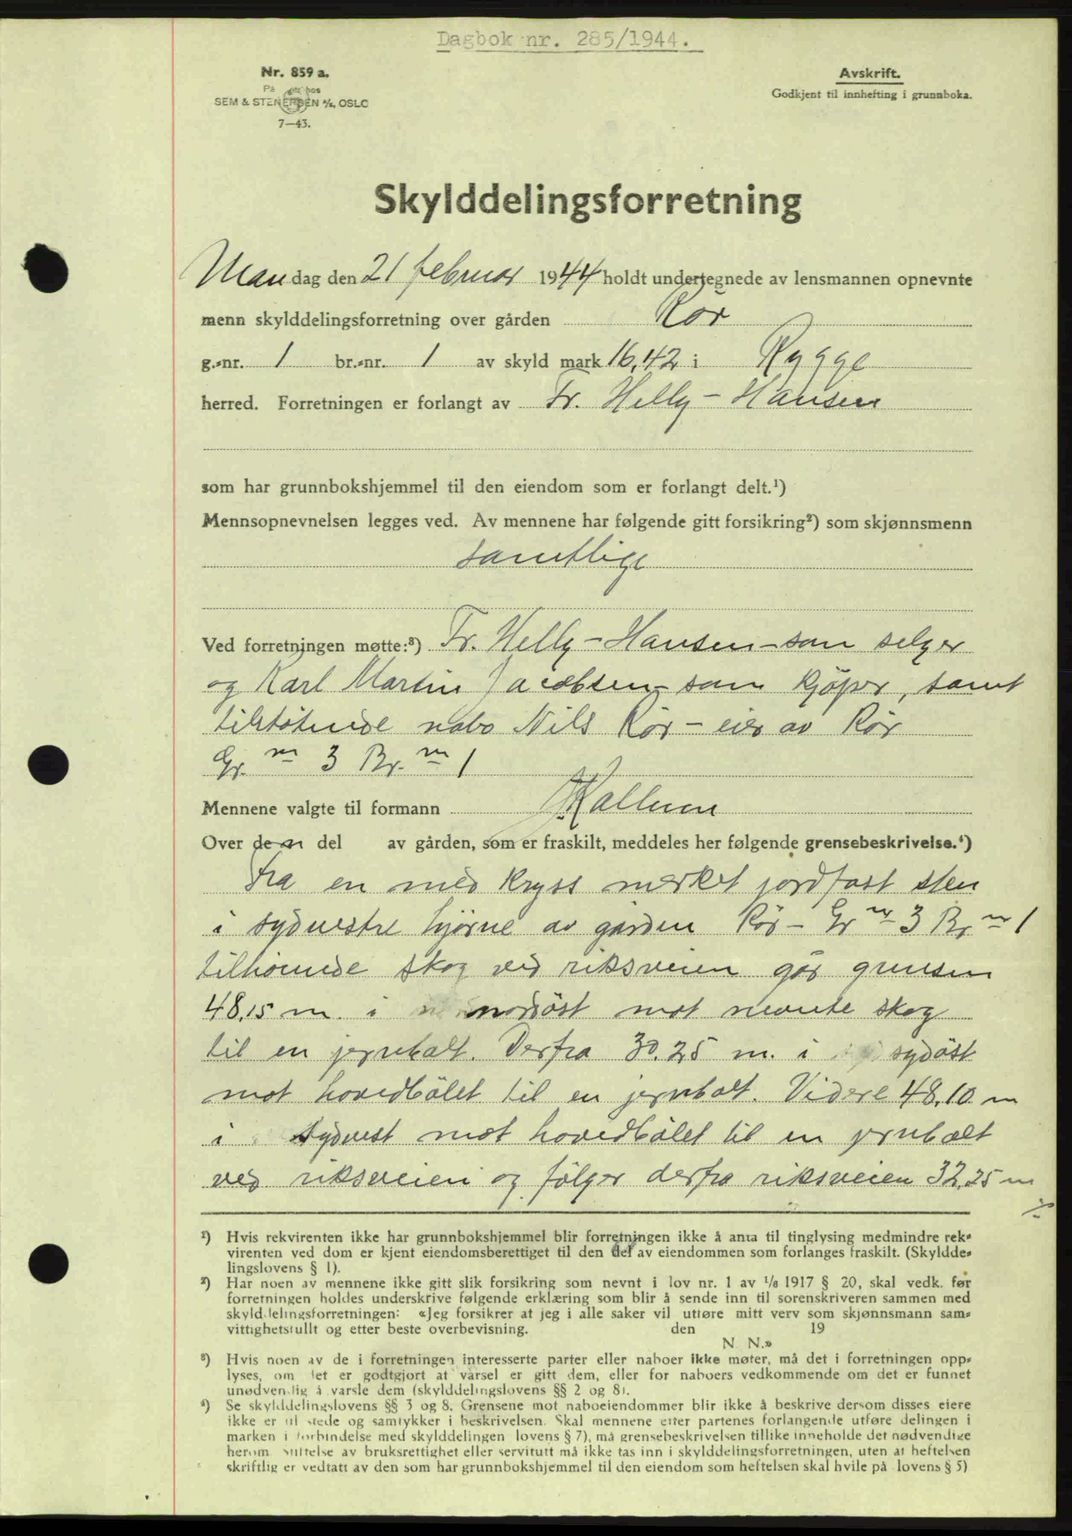 Dagbok nr. 285/1944.
Nr. 859 a.
SEM & STENERSEN A/S, OSLO
7—43.
Avskrift.
Godkjent til innhefting i grunnboka.
Skylddelingsforretning
Mandag den 21 februar 1944 holdt undertegnede av lensmannen opnevnte
menn skylddelingsforretning over gården Rör
g.-nr. 1 br.-nr. 1 av skyld mark 16,42 i Rygge
herred. Forretningen er forlangt av Fr. Helly-Hansen
som har grunnbokshjemmel til den eiendom som er forlangt delt.¹)
Mennsopnevnelsen legges ved. Av mennene har følgende gitt forsikring²) som skjønnsmenn
samtlige
Ved forretningen møtte:³) Fr. Helly-Hansen - som selger
og Karl Martin Jacobsen - som kjöper, samt
tilstötende nabo Nils Rör - eier av Rör
Gr. nr 3 Br. nr 1
Mennene valgte til formann Kallum
Over den del av gården, som er fraskilt, meddeles her følgende grensebeskrivelse.⁴)
Fra en med kryss merket jordfast sten
i sydvestre hjörne av gården Rör - Gr nr 3 Br nr 1
tilhörende skog ved riksveien går grensen
48,15 m. i nordöst mot nevnte skog
til en jernbolt. Derfra 30.25 m. i sydöst
mot hovedbölet til en jernbolt. Videre 48,10 m
i sydvest mot hovedbölet til en jernbolt
ved riksveien og fölger derfra riksveien 32,25 m
⁒
¹) Hvis rekvirenten ikke har grunnbokshjemmel blir forretningen ikke å anta til tinglysing medmindre rek-
virenten ved dom er kjent eiendomsberettiget til den del av eiendommen som forlanges fraskilt. (Skyldde-
lingslovens § 1).
²) Har noen av mennene ikke gitt slik forsikring som nevnt i lov nr. 1 av 1/6 1917 § 20, skal vedk. før
forretningen holdes underskrive følgende erklæring som blir å sende inn til sorenskriveren sammen med
skylddelingsforretningen: «Jeg forsikrer at jeg i alle saker vil utføre mitt verv som skjønnsmann sam-
vittighetsfullt og etter beste overbevisning. den 19
N. N.»
³) Hvis noen av de i forretningen interesserte parter eller naboer ikke møter, må det i forretningen opp-
lyses, om det er godtgjort at varsel er gitt dem, eller for naboers vedkommende om det er funnet
unødvendig å varsle dem (skylddelingslovens §§ 2 og 8).
⁴) Se skylddelingslovens §§ 3 og 8. Grensene mot naboeiendommer blir ikke å beskrive dersom disses eiere
ikke er til stede og samtykker i beskrivelsen. Skal mennene etter partenes forlangende utføre delingen i
marken i forbindelse med skylddelingen lovens § 7), må grensebeskrivelsen tillike inneholde det nødvendige
herom. Stiftelse av bruksrettighet eller servitutt må ikke tas inn i skylddelingsforretningen, uten at heftelsen
skriftlig er vedtatt av den som har grunnbokshjemmel til den eiendom som heftelsen skal hvile på lovens § 5)